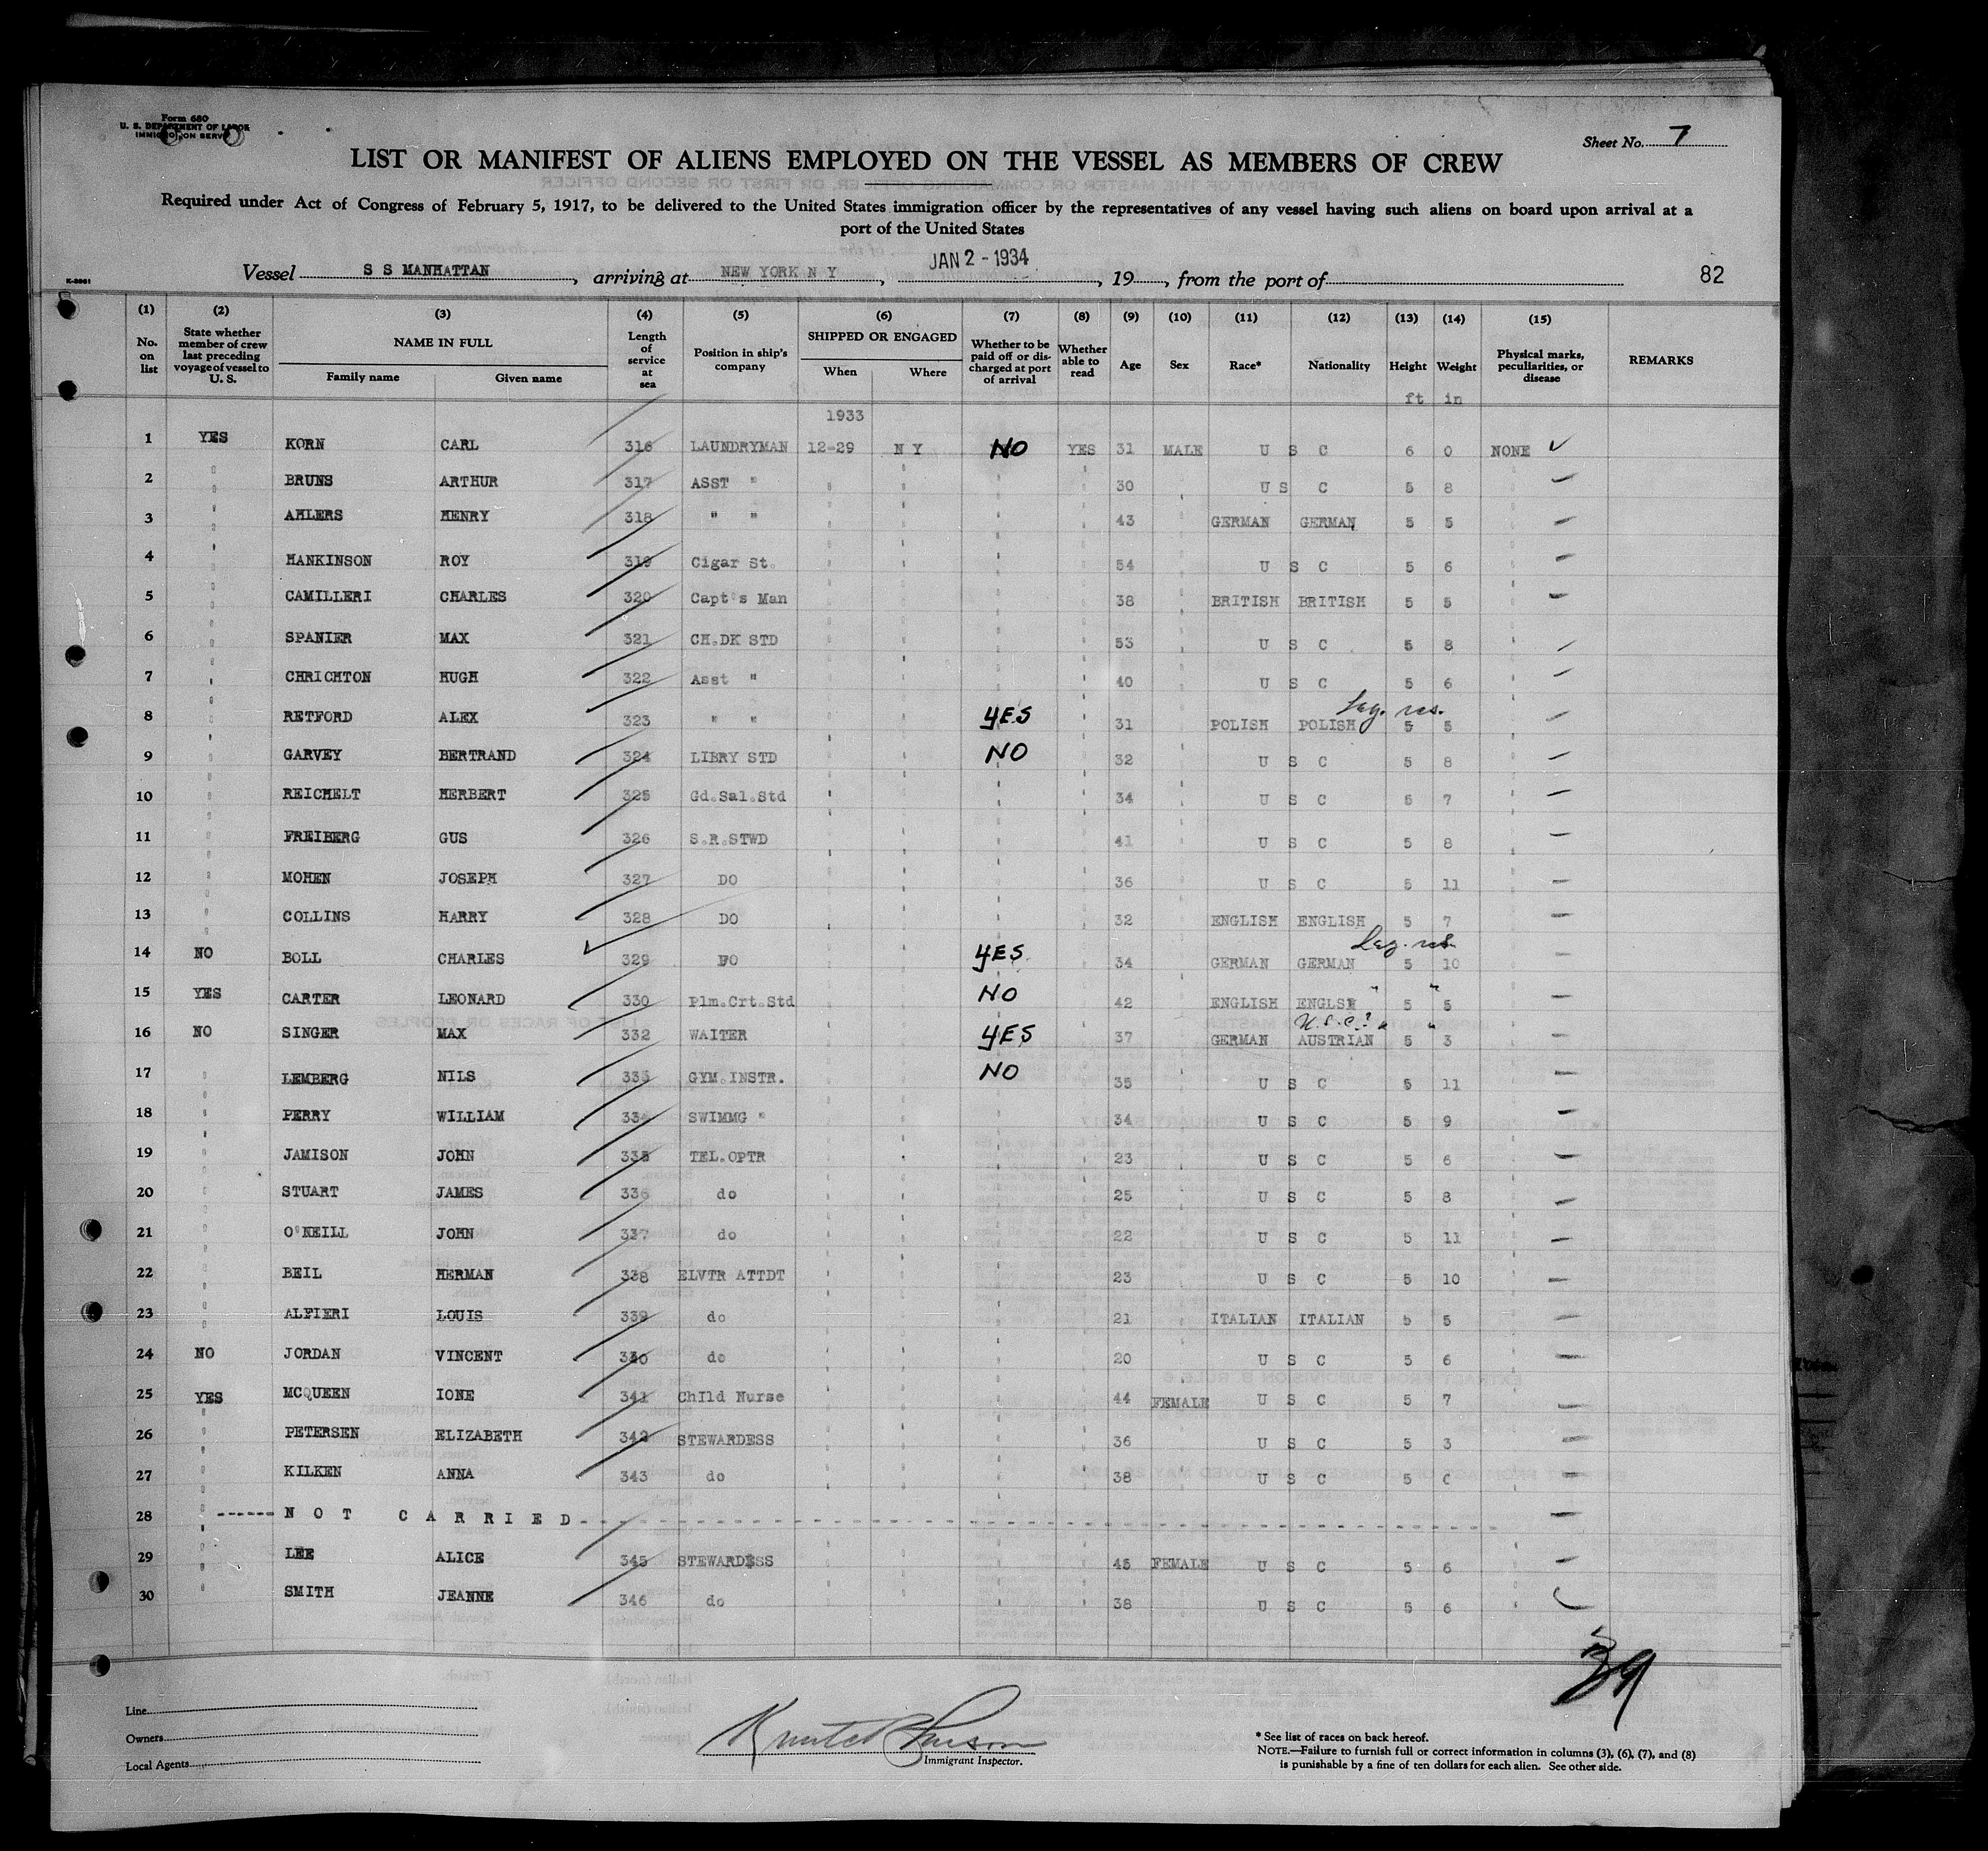 Form 680
U. S. DEPARTMENT OF LABOR
IMMIGRATION SERVICE
Sheet No. 7
LIST OR MANIFEST OF ALIENS EMPLOYED ON THE VESSEL AS MEMBERS OF CREW
Required under Act of Congress of February 5, 1917, to be delivered to the United States immigration officer by the representatives of any vessel having such aliens on board upon arrival at a
port of the United States
Vessel S S MANHATTAN, arriving at NEW YORK N Y, JAN 2 - 1934, 19, from the port of 82
(1) (2) (3) (4) (5) (6) (7) (8) (9) (10) (11) (12) (13) (14) (15)
No. on list
State whether member of crew last preceding voyage of vessel to U. S.
NAME IN FULL
Family name Given name
Length of service at sea
Position in ship's company
SHIPPED OR ENGAGED
When Where
Whether to be paid off or discharged at port of arrival
Whether able to read
Age Sex Race* Nationality Height Weight
Physical marks, peculiarities, or disease
REMARKS
ft in
1933
1 YES KORN CARL 316 LAUNDRYMAN 12-29 N Y NO YES 31 MALE U S C 6 0 NONE
2 " BRUNS ARTHUR 317 ASST " 30 U S C 5 8
3 " AHLERS HENRY 318 " " 43 GERMAN GERMAN 5 5
4 " HANKINSON ROY 319 Cigar St. 54 U S C 5 6
5 " CAMILLERI CHARLES 320 Capt's Man 38 BRITISH BRITISH 5 5
6 " SPANIER MAX 321 CH.DK STD 53 U S C 5 8
7 " CHRICHTON HUGH 322 Asst " 40 U S C 5 6
Leg. res.
8 " RETFORD ALEX 323 " " YES 31 POLISH POLISH 5 5
9 " GARVEY BERTRAND 324 LIBRY STD NO 32 U S C 5 8
10 " REICHELT HERBERT 325 Gd.Sal.Std 34 U S C 5 7
11 " FREIBERG GUS 326 S.R.STWD 41 U S C 5 8
12 " MOHEN JOSEPH 327 DO 36 U S C 5 11
13 " COLLINS HARRY 328 DO 32 ENGLISH ENGLISH 5 7
Leg. res.
14 NO BOLL CHARLES 329 FO YES 34 GERMAN GERMAN 5 10
15 YES CARTER LEONARD 330 Plm.Crt.Std NO 42 ENGLISH ENGLSH " " 5 5
U.S.C.? " "
16 NO SINGER MAX 332 WAITER YES 37 GERMAN AUSTRIAN 5 3
17 " LEMBERG NILS 333 GYM.INSTR. NO 35 U S C 5 11
18 " PERRY WILLIAM 334 SWIMMG " 34 U S C 5 9
19 " JAMISON JOHN 335 TEL.OPTR 23 U S C 5 6
20 " STUART JAMES 336 do 25 U S C 5 8
21 " O'NEILL JOHN 337 do 22 U S C 5 11
22 " BEIL HERMAN 338 ELVTR ATTDT 23 U S C 5 10
23 " ALFIERI LOUIS 339 do 21 ITALIAN ITALIAN 5 5
24 NO JORDAN VINCENT 330 do 20 U S C 5 6
25 YES MCQUEEN IONE 341 ChIld Nurse 44 FEMALE U S C 5 7
26 " PETERSEN ELIZABETH 342 STEWARDESS 36 U S C 5 3
27 " KILKEN ANNA 343 do 38 U S C 5 0
28 ------ N O T C A R R I E D - - - - - -
29 " LEE ALICE 345 STEWARDESS 45 FEMALE U S C 5 6
30 " SMITH JEANNE 346 do 38 U S C 5 6
39
Line
Owners
Local Agents
Immigrant Inspector.
* See list of races on back hereof.
NOTE.—Failure to furnish full or correct information in columns (3), (6), (7), and (8)
is punishable by a fine of ten dollars for each alien. See other side.